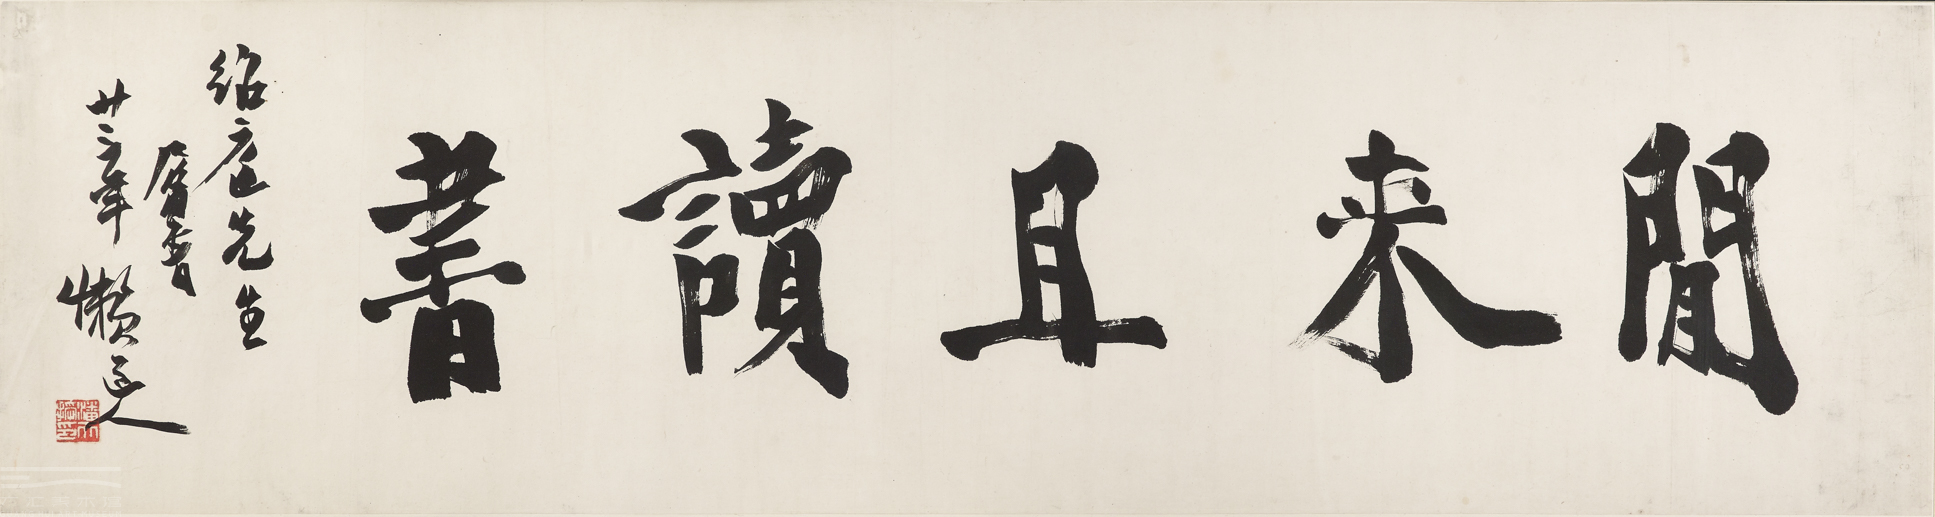 閒来且讀書
绍庭先生
屬書
廿三年 懶道人